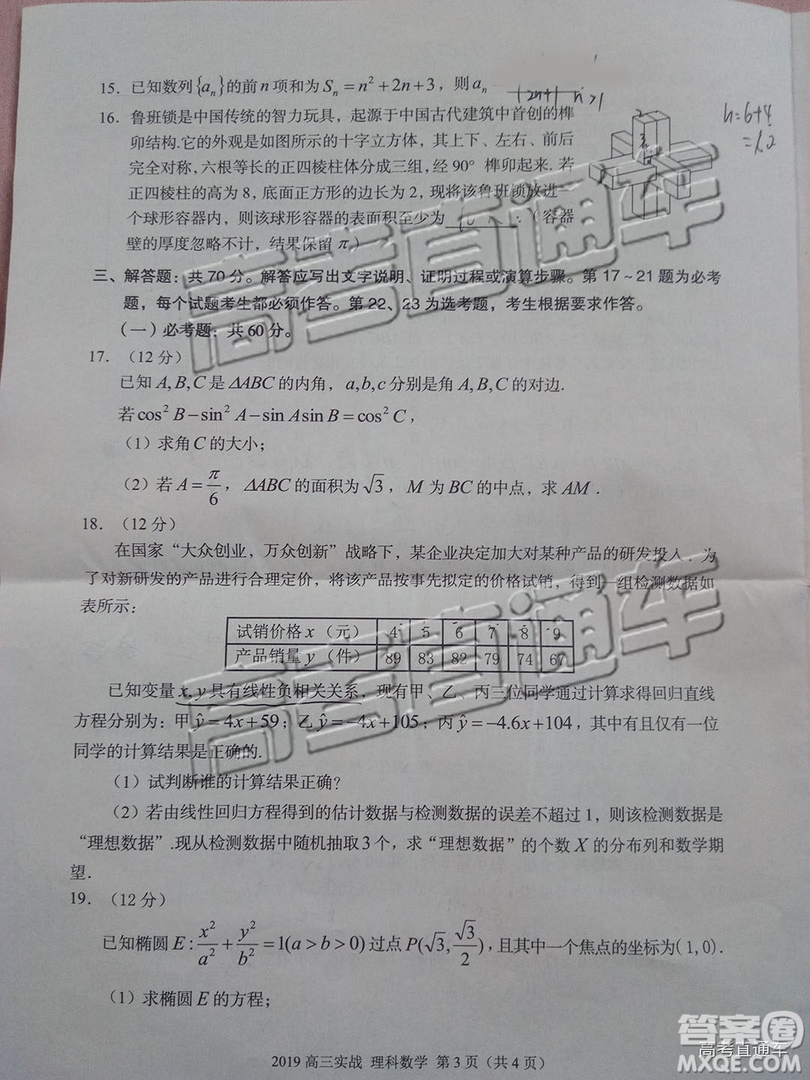 15. 已知数列{aₙ}的前n项和为Sₙ=n²+2n+3，则aₙ
(2n+1) n>1
16. 鲁班锁是中国传统的智力玩具，起源于中国古代建筑中首创的榫
卯结构.它的外观是如图所示的十字立方体，其上下、左右、前后
完全对称，六根等长的正四棱柱体分成三组，经90°榫卯起来.若
正四棱柱的高为8，底面正方形的边长为2，现将该鲁班锁放进一
个球形容器内，则该球形容器的表面积至少为 .（容器
壁的厚度忽略不计，结果保留π）
h=6+4
三、解答题：共70分。解答应写出文字说明、证明过程或演算步骤。第17~21题为必考
题，每个试题考生都必须作答。第22、23为选考题，考生根据要求作答。
（一）必考题：共60分。
17. （12分）
已知A,B,C是ΔABC的内角，a,b,c分别是角A,B,C的对边.
若cos²B−sin²A−sinAsinB=cos²C，
（1）求角C的大小；
（2）若A=π/6，ΔABC的面积为√3，M为BC的中点，求AM.
18. （12分）
在国家“大众创业，万众创新”战略下，某企业决定加大对某种产品的研发投入.为
了对新研发的产品进行合理定价，将该产品按事先拟定的价格试销，得到一组检测数据如
表所示：
试销价格x（元） 4 5 6 7 8 9
产品销量y（件） 89 83 82 79 74 67
已知变量x,y具有线性负相关关系，现有甲、乙、丙三位同学通过计算求得回归直线
方程分别为：甲ŷ=4x+59；乙ŷ=−4x+105；丙ŷ=−4.6x+104，其中有且仅有一位
同学的计算结果是正确的.
（1）试判断谁的计算结果正确？
（2）若由线性回归方程得到的估计数据与检测数据的误差不超过1，则该检测数据是
“理想数据”.现从检测数据中随机抽取3个，求“理想数据”的个数X的分布列和数学期
望.
19. （12分）
已知椭圆E:x²/a²+y²/b²=1(a>b>0)过点P(√3,√3/2)，且其中一个焦点的坐标为(1,0).
（1）求椭圆E的方程；
2019高三实战 理科数学 第3页（共4页）
高考直通车
高考直通车
高考直通车
答案圈
MXQE.COM